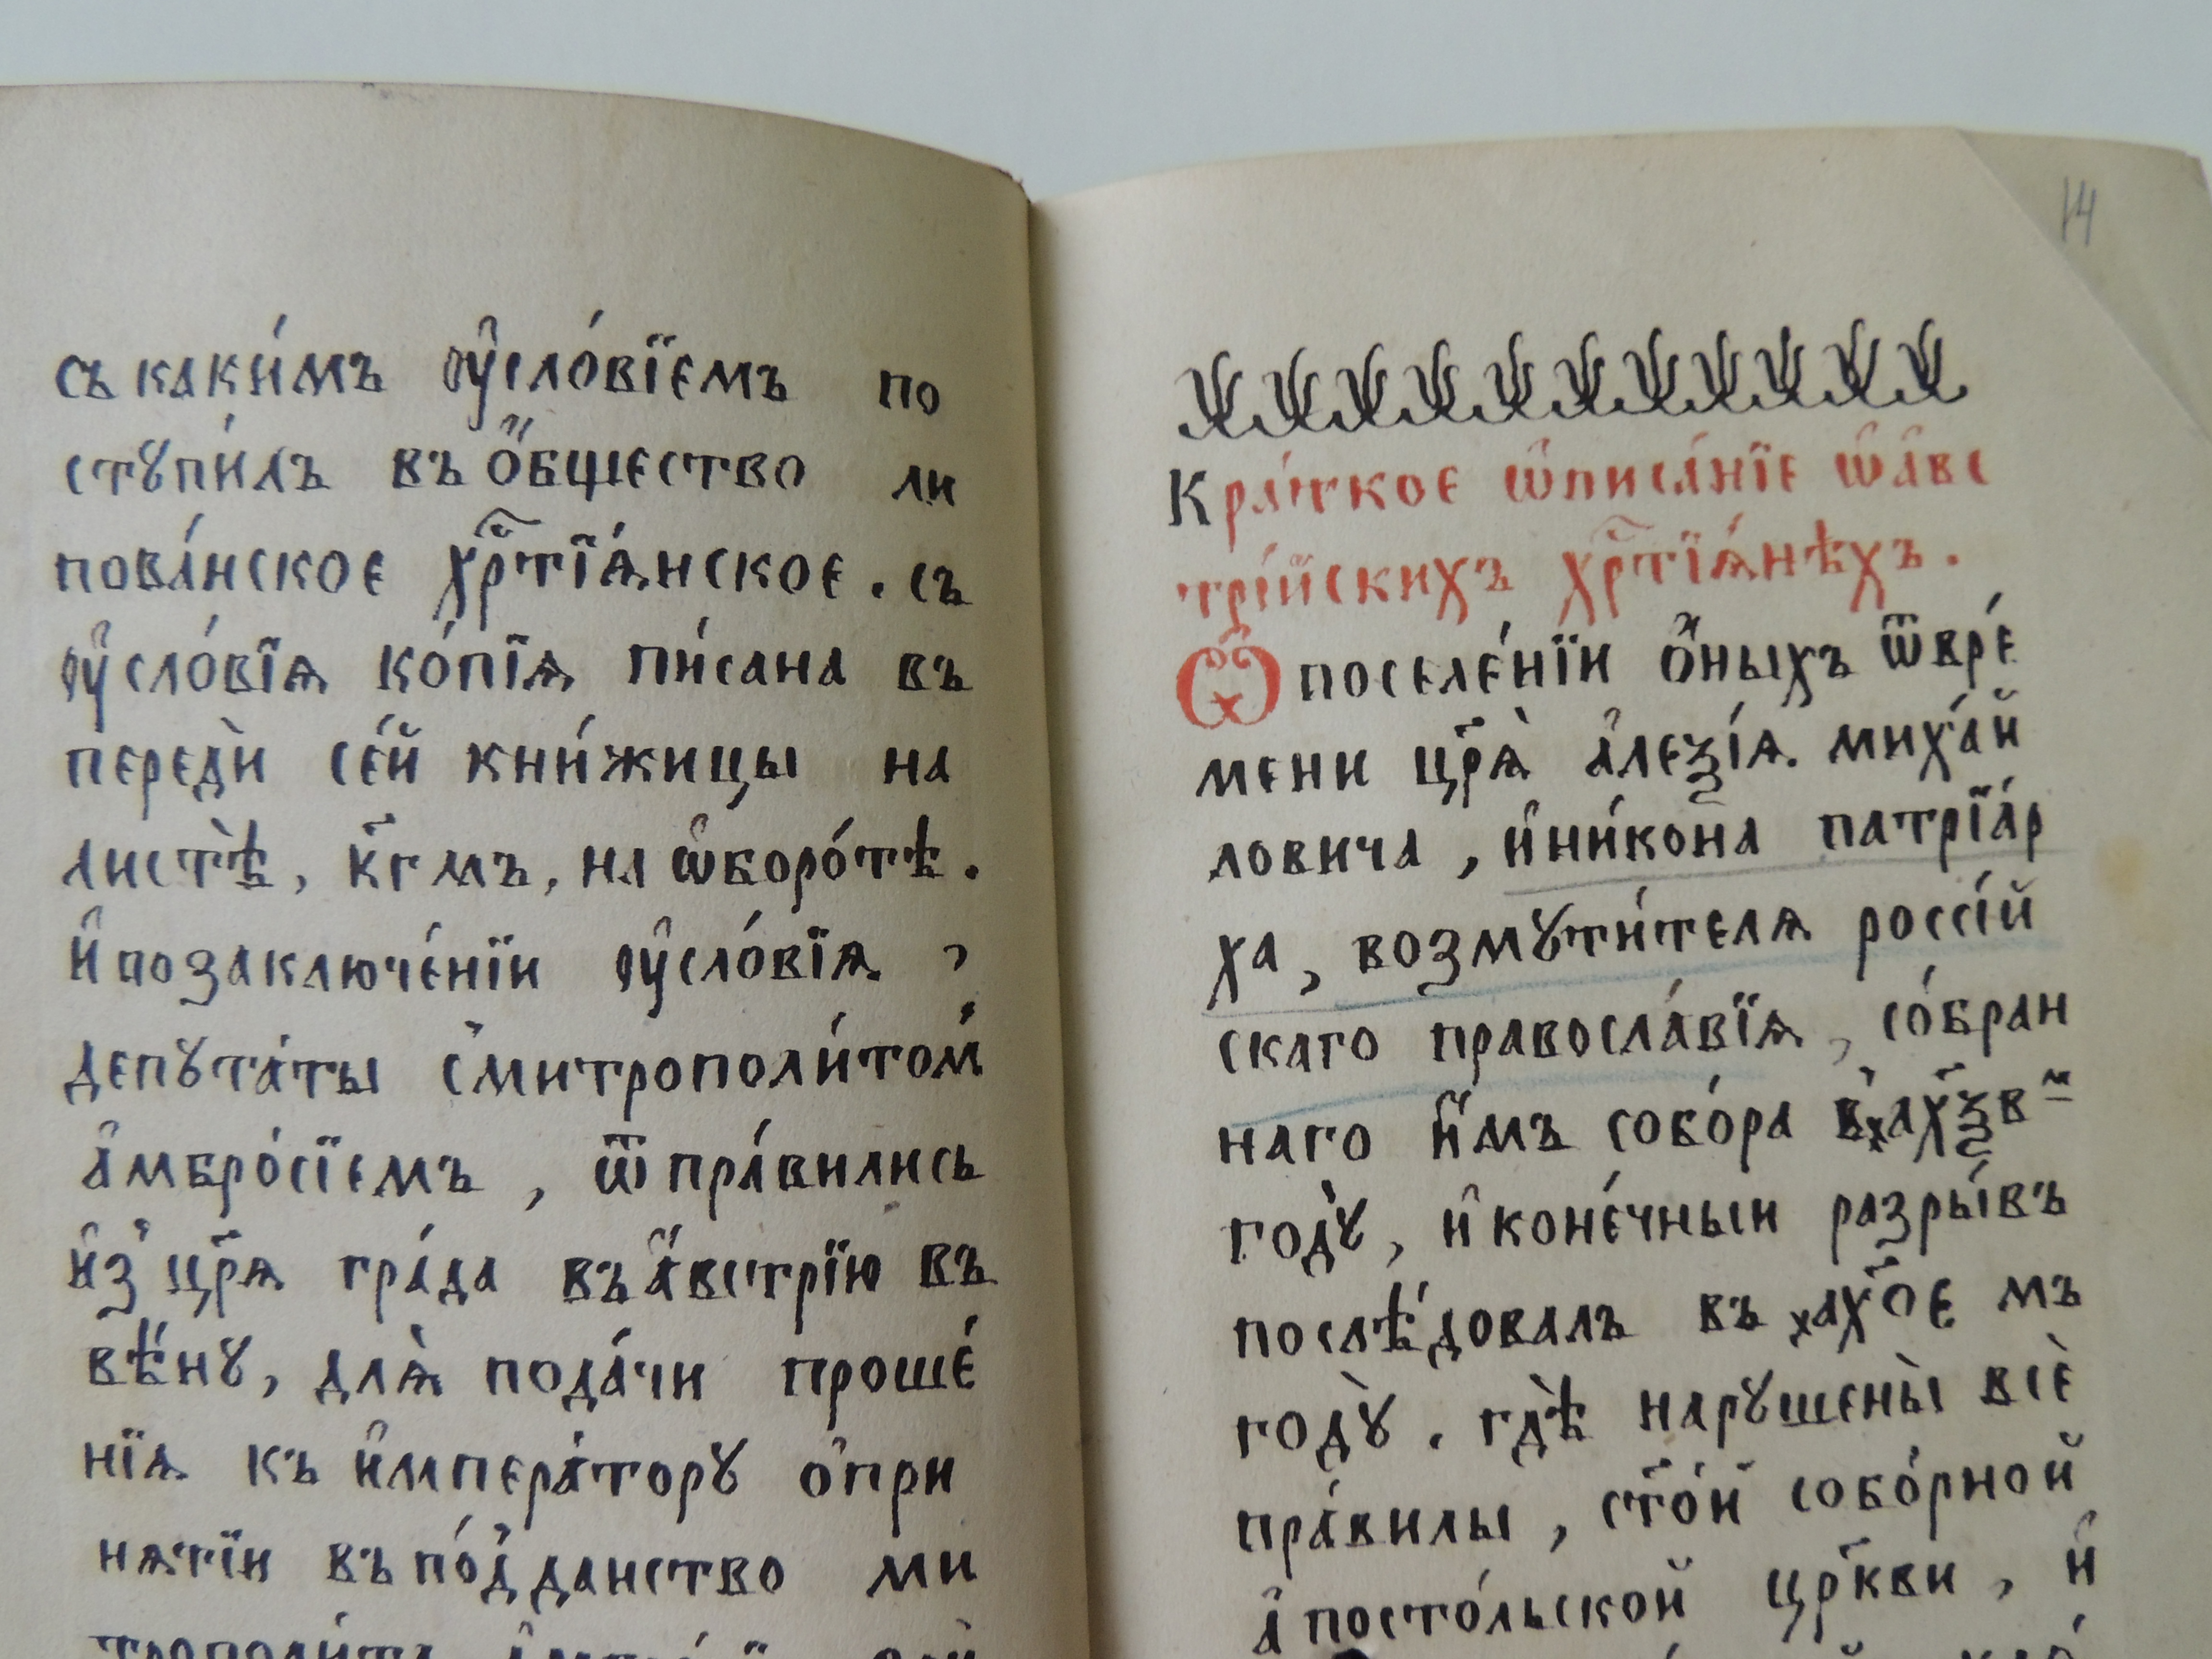 съ каки́мъ ᲂу҆сло́вїемъ по
ступи́лъ въ ѻ҆́бщество ли
пова́нское хр҇тїа́нское. съ
ᲂу҆сло́вїѧ ко́пїѧ пи́сана въ
передѝ се́й кни́жицы на
листѣ̀, к҃гмъ, на ѡ҆боро́тѣ.
и҆ по заключе́нїи ᲂу҆сло́вїѧ,
депꙋта́ты с̾митрополи́том̾
а҆мбро́сїемъ, ѿпра́вились
и҆з̾ цр҃ѧ гра́да въ а҆́встрїю въ
вѣ́нꙋ, длѧ̀ пода́чи проше́
нїѧ къ и҆мпера́торꙋ о҆ при
нѧ́тїи въ по́д̾данство ми
14
Кра́ткое ѡ҆писа́нїе ѡ҆ а҆вс
трі́йскихъ хр҇тїѧ́нѣхъ.
Ѽ поселе́нїи ѻ҆́ныхъ ѿ вре́
мени цр҃ѧ̀ а҆леѯі́ѧ. миха́й
ловича, и҆ ни́кона патрїа́р
ха, возмꙋти́телѧ россі́й
скаго правосла́вїѧ, со́бран
наго и҆́мъ собо́ра в̾ ҂ах҃ѯв м
годꙋ̀, и҆ коне́чныи разры́въ
послѣ́довалъ въ ҂ах҃ое мъ
годꙋ̀. гдѣ̀ нарꙋшены̀ всѐ
пра́вилы, ст҃о́й собо́рной
а҆посто́льской цр҃кви, и҆